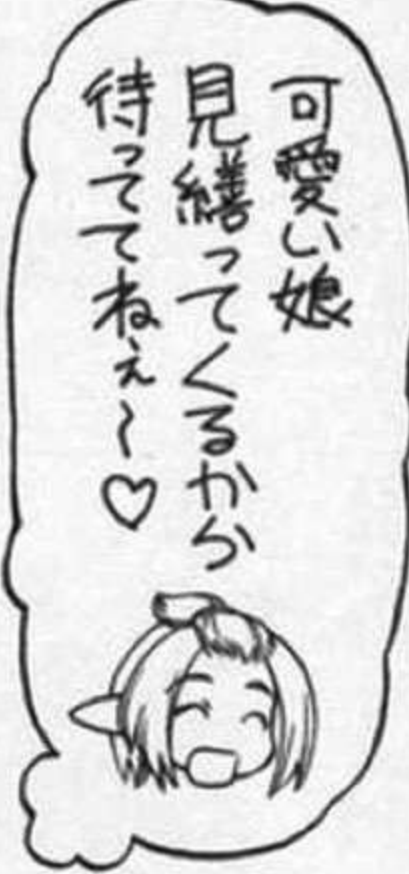 可愛い娘
見繕ってくるから
待っててねぇ～♡